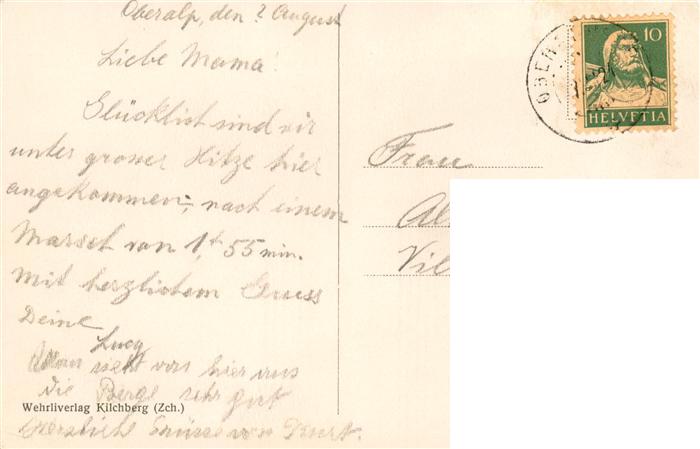 Oberalp, den ? August
Liebe Mama!
Glücklich sind wir
unter grosser Hitze hier
angekommen, nach einem
Marsch von 1 St 55 min.
Mit herzlichem Gruss
Deine
Lucy
Man sieht von hier aus
die Berge sehr gut
Herzliche Grüsse von Kurt.
Wehrliverlag Kilchberg (Zch.)
10
HELVETIA
Frau